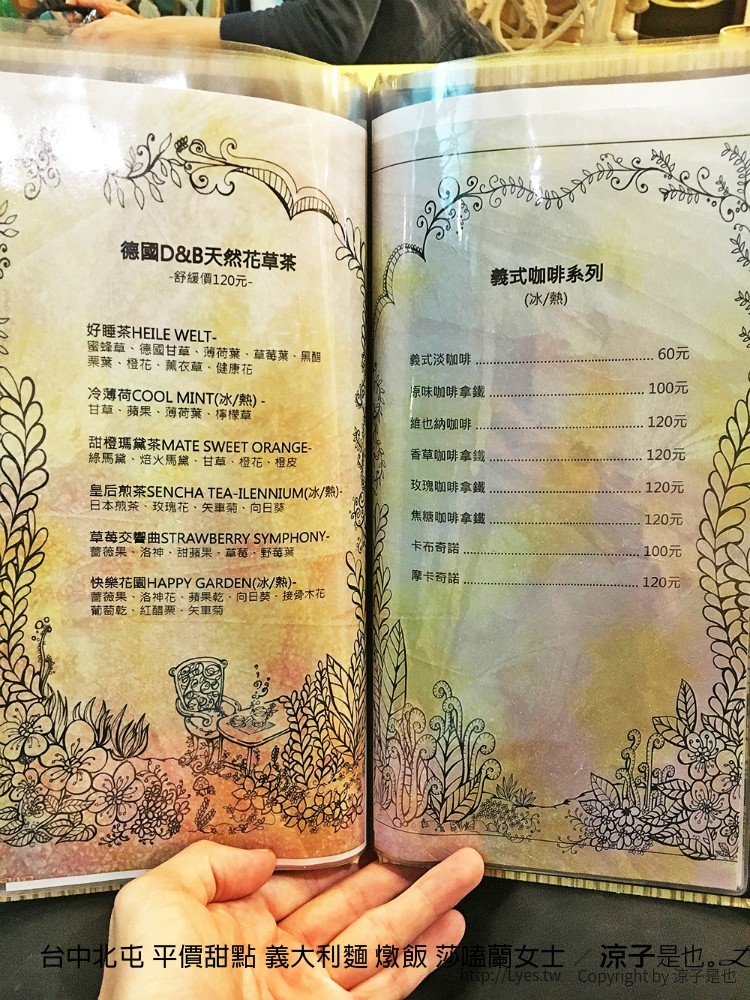 德國D&B天然花草茶
-舒緩價120元-
好睡茶HEILE WELT-
蜜蜂草、德國甘草、薄荷葉、草莓葉、黑醋
栗葉、橙花、薰衣草、健康花
冷薄荷COOL MINT(冰/熱) -
甘草、蘋果、薄荷葉、檸檬草
甜橙瑪黛茶MATE SWEET ORANGE-
綠馬黛、焙火馬黛、甘草、橙花、橙皮
皇后煎茶SENCHA TEA-ILENNIUM(冰/熱)-
日本煎茶、玫瑰花、矢車菊、向日葵
草莓交響曲STRAWBERRY SYMPHONY-
薔薇果、洛神、甜蘋果、草莓、野莓葉
快樂花園HAPPY GARDEN(冰/熱)-
薔薇果、洛神花、蘋果乾、向日葵、接骨木花
葡萄乾、紅醋栗、矢車菊
義式咖啡系列
(冰/熱)
義式淡咖啡 ........................ 60元
原味咖啡拿鐵 ........................ 100元
維也納咖啡 ........................ 120元
香草咖啡拿鐵 ........................ 120元
玫瑰咖啡拿鐵 ........................ 120元
焦糖咖啡拿鐵 ........................ 120元
卡布奇諾 ........................ 100元
摩卡奇諾 ........................ 120元
台中北屯 平價甜點 義大利麵 燉飯 莎嗑蘭女士 / 涼子是也。
http://Lyes.tw Copyright by 涼子是也